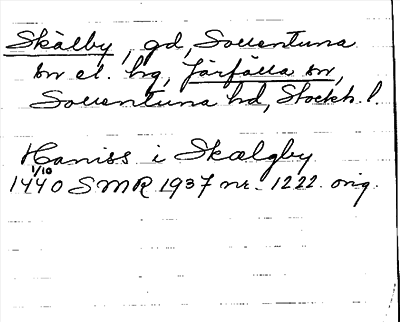 Skälby, gd, Sollentuna
sn el. hg, Järfälla sn,
Sollentuna hd, Stockh. l.
Haniss i Skælgby
1440 1/10 SMR 1937 nr. 1222. orig.